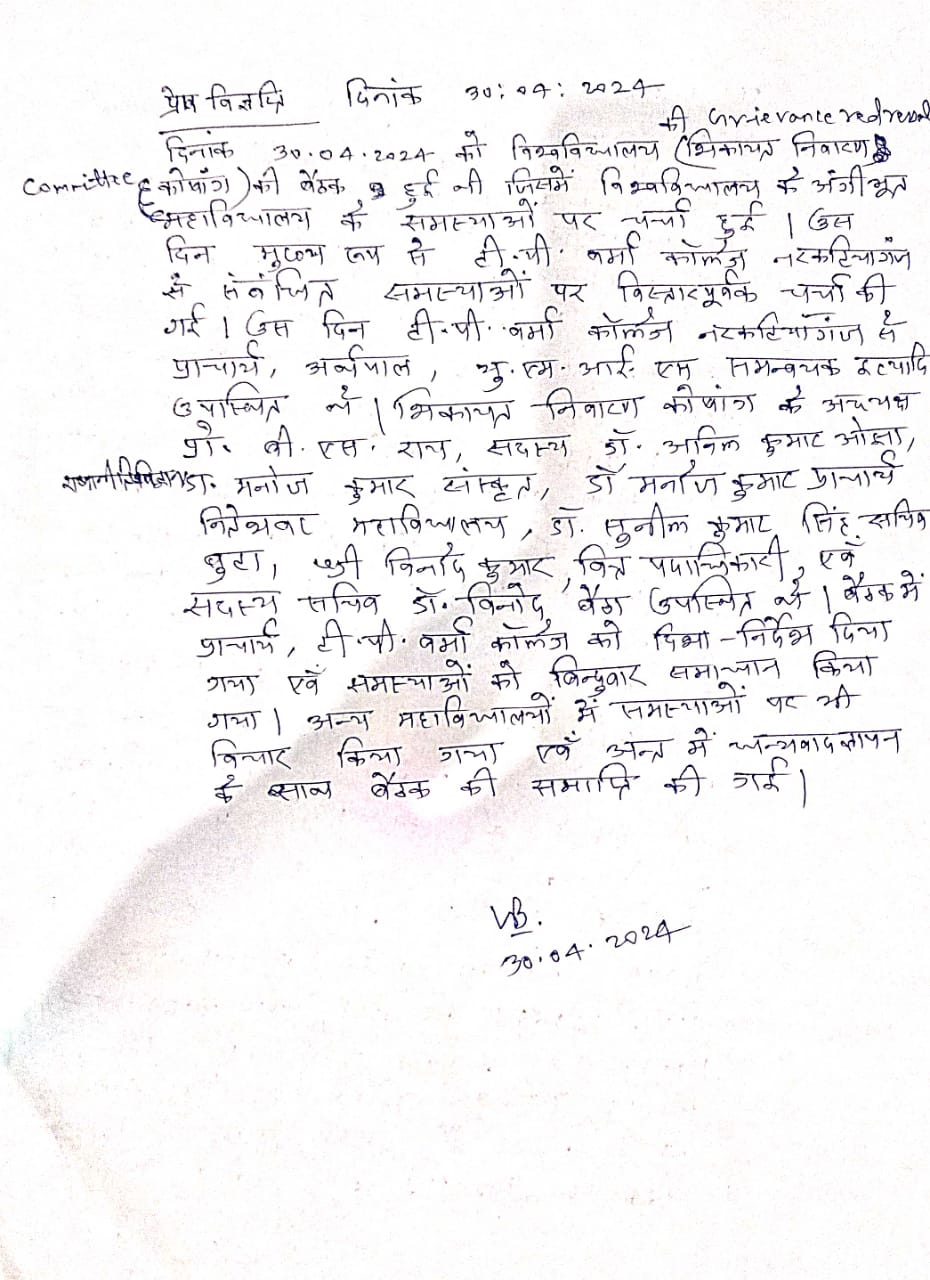 प्रेस विज्ञप्ति दिनांक 30:04:2024
की Grievance redressal
दिनांक 30.04.2024 को विश्वविद्यालय (शिकायत निवारण
Committee कोषांग) की बैठक हुई थी जिसमें विश्वविद्यालय के अंगीभूत
महाविद्यालय के समस्याओं पर चर्चा हुई । उस
दिन मुख्य रूप से टी.पी. वर्मा कॉलेज नरकटियागंज
से संबंधित समस्याओं पर विस्तारपूर्वक चर्चा की
गई । उस दिन टी.पी. वर्मा कॉलेज नरकटियागंज से
प्राचार्य, अर्थपाल, यु.एम.आई.एस समन्वयक इत्यादि
उपस्थित थे । शिकायत निवारण कोषांग के अध्यक्ष
प्रो. बी.एस. राय, सदस्य डॉ. अनिल कुमार ओझा,
राजनीति विज्ञान डॉ. मनोज कुमार संस्कृत, डॉ मनोज कुमार प्राचार्य
नितेश्वर महाविद्यालय, डॉ. सुनील कुमार सिंह, सचिव
बुटा, श्री विनोद कुमार, वित्त पदाधिकारी, एवँ
सदस्य सचिव डॉ. विनोद बैठा उपस्थित थे । बैठक में
प्राचार्य, टी.पी. वर्मा कॉलेज को दिशा-निर्देश दिया
गया एवँ समस्याओं को बिन्दुवार समाधान किया
गया । अन्य महाविद्यालयों में समस्याओं पर भी
विचार किया गया एवँ अन्त में धन्यवाद ज्ञापन
के साथ बैठक की समाप्ति की गई ।
VB.
30.04.2024